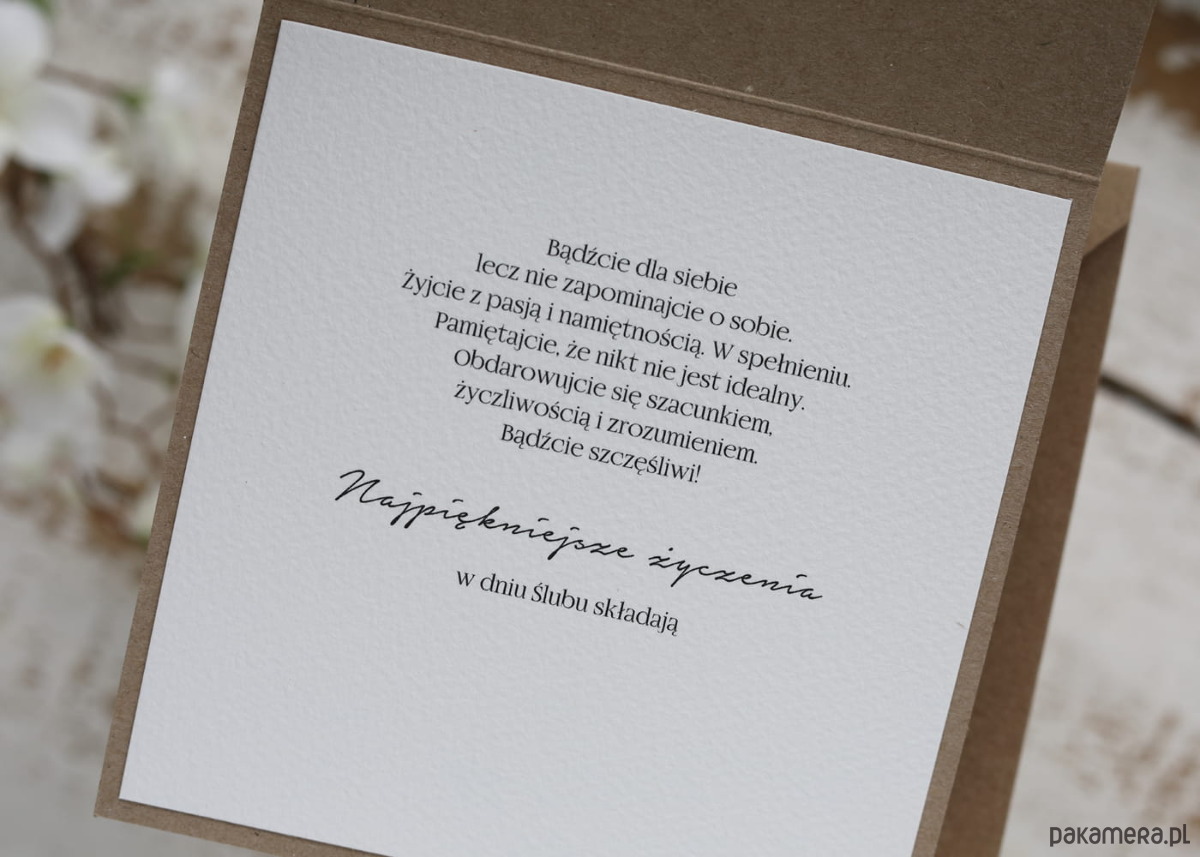 Bądźcie dla siebie
lecz nie zapominajcie o sobie.
Żyjcie z pasją i namiętnością. W spełnieniu.
Pamiętajcie, że nikt nie jest idealny.
Obdarowujcie się szacunkiem,
życzliwością i zrozumieniem.
Bądźcie szczęśliwi!
Najpiękniejsze życzenia
w dniu ślubu składają
pakamera.pl